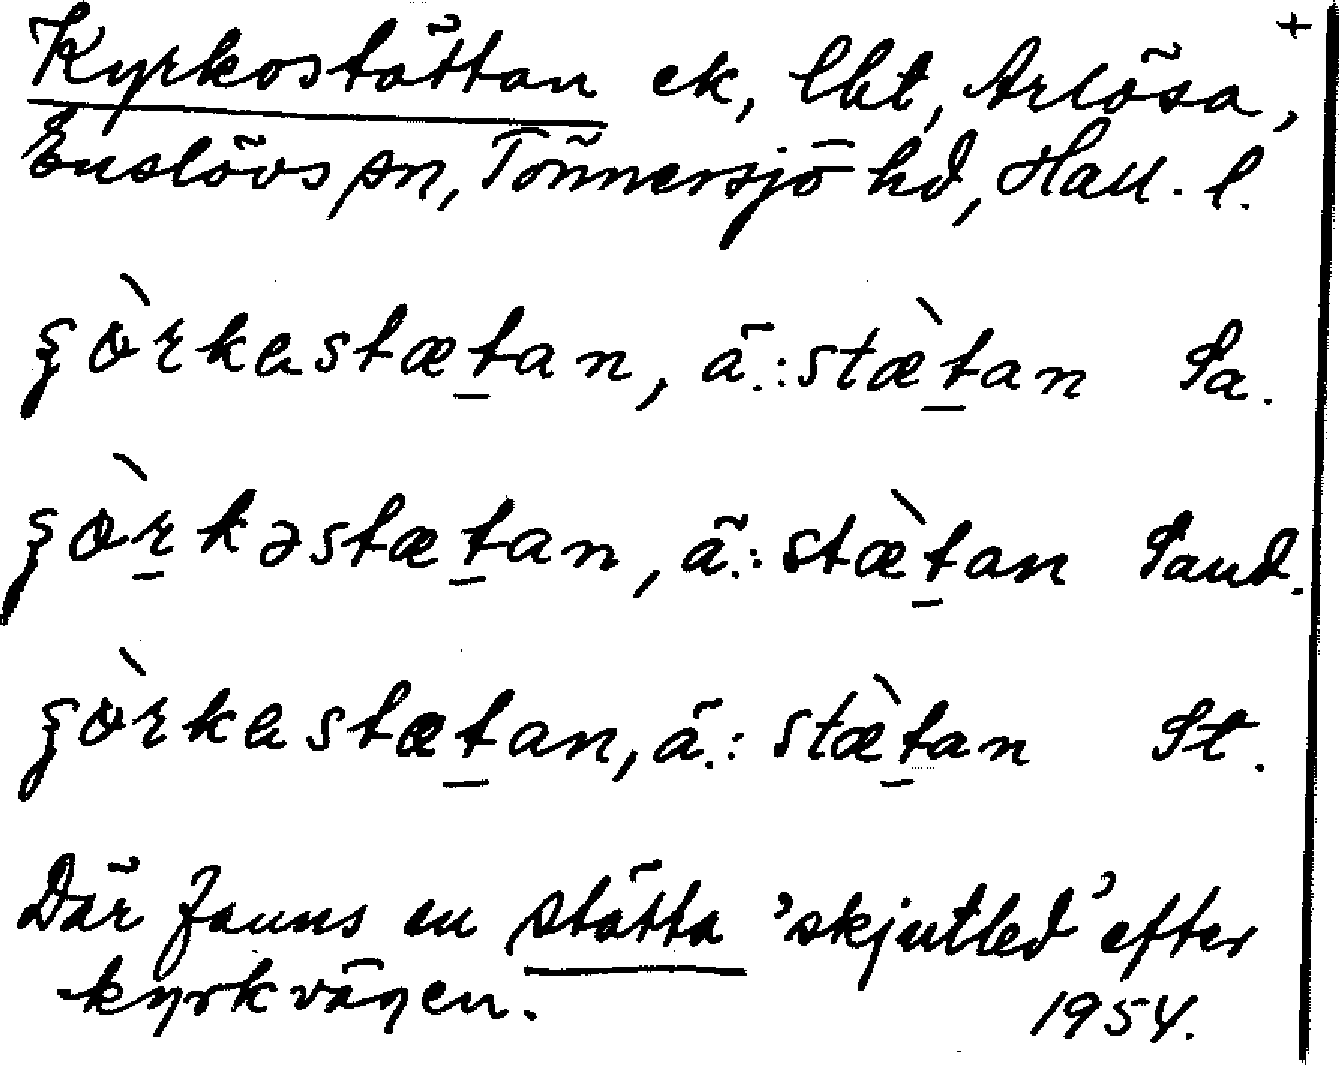 +
Kyrkostättan ek, lht, Arlösa,
Enslövs sn, Tönnersjö hd, Hall. l.
ʂòrkastætan, ä.: stætan Sa.
ʂòrkəstætan, ä.: stætan Sand.
ʂòrkastætan, ä.: stætan St.
Där fanns en stätta 'skjutled' efter
kyrkvägen. 1954.